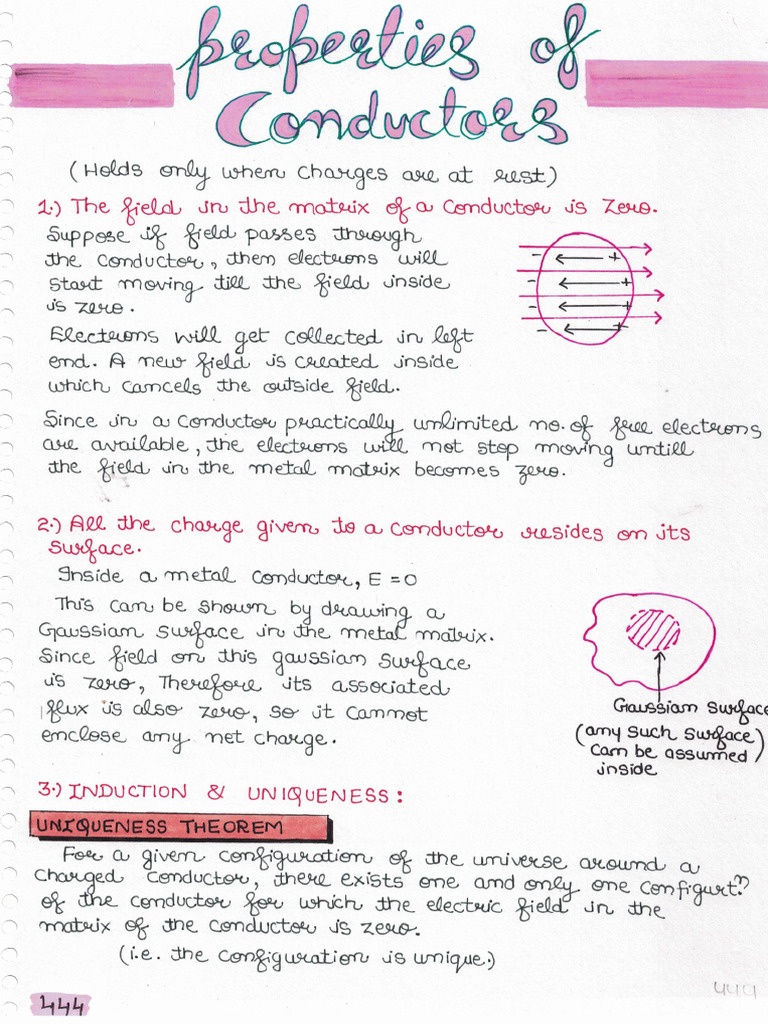 Properties of
Conductors
(Holds only when charges are at rest)
1.) The field in the matrix of a conductor is zero.
Suppose if field passes through
the conductor, then electrons will
start moving till the field inside
is zero.
Electrons will get collected in left
end. A new field is created inside
which cancels the outside field.
- +
- +
- +
- +
Since in a conductor practically unlimited no. of free electrons
are available, the electrons will not stop moving untill
the field in the metal matrix becomes zero.
2.) All the charge given to a conductor resides on its
surface.
Inside a metal conductor, E = 0
This can be shown by drawing a
Gaussian surface in the metal matrix.
Since field on this gaussian surface
is zero, Therefore its associated
flux is also zero, so it cannot
enclose any net charge.
Gaussian surface
(any such surface)
can be assumed
inside
3.) INDUCTION & UNIQUENESS:
UNIQUENESS THEOREM
For a given configuration of the universe around a
charged conductor, there exists one and only one configurtn
of the conductor for which the electric field in the
matrix of the conductor is zero.
(i.e. the configuration is unique.)
444
449